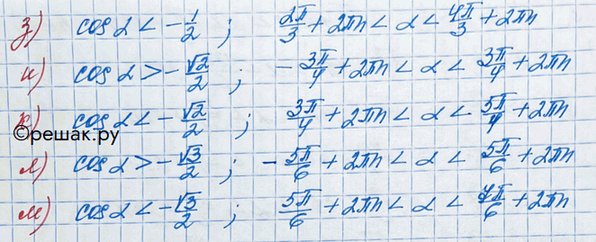 з) cos α < -1/2 ; 2π/3 + 2πn < α < 4π/3 + 2πn
и) cos α > -√2/2 ; -3π/4 + 2πn < α < 3π/4 + 2πn
к) cos α < -√2/2 ; 3π/4 + 2πn < α < 5π/4 + 2πn
©решак.ру
л) cos α > -√3/2 ; -5π/6 + 2πn < α < 5π/6 + 2πn
м) cos α < -√3/2 ; 5π/6 + 2πn < α < 7π/6 + 2πn